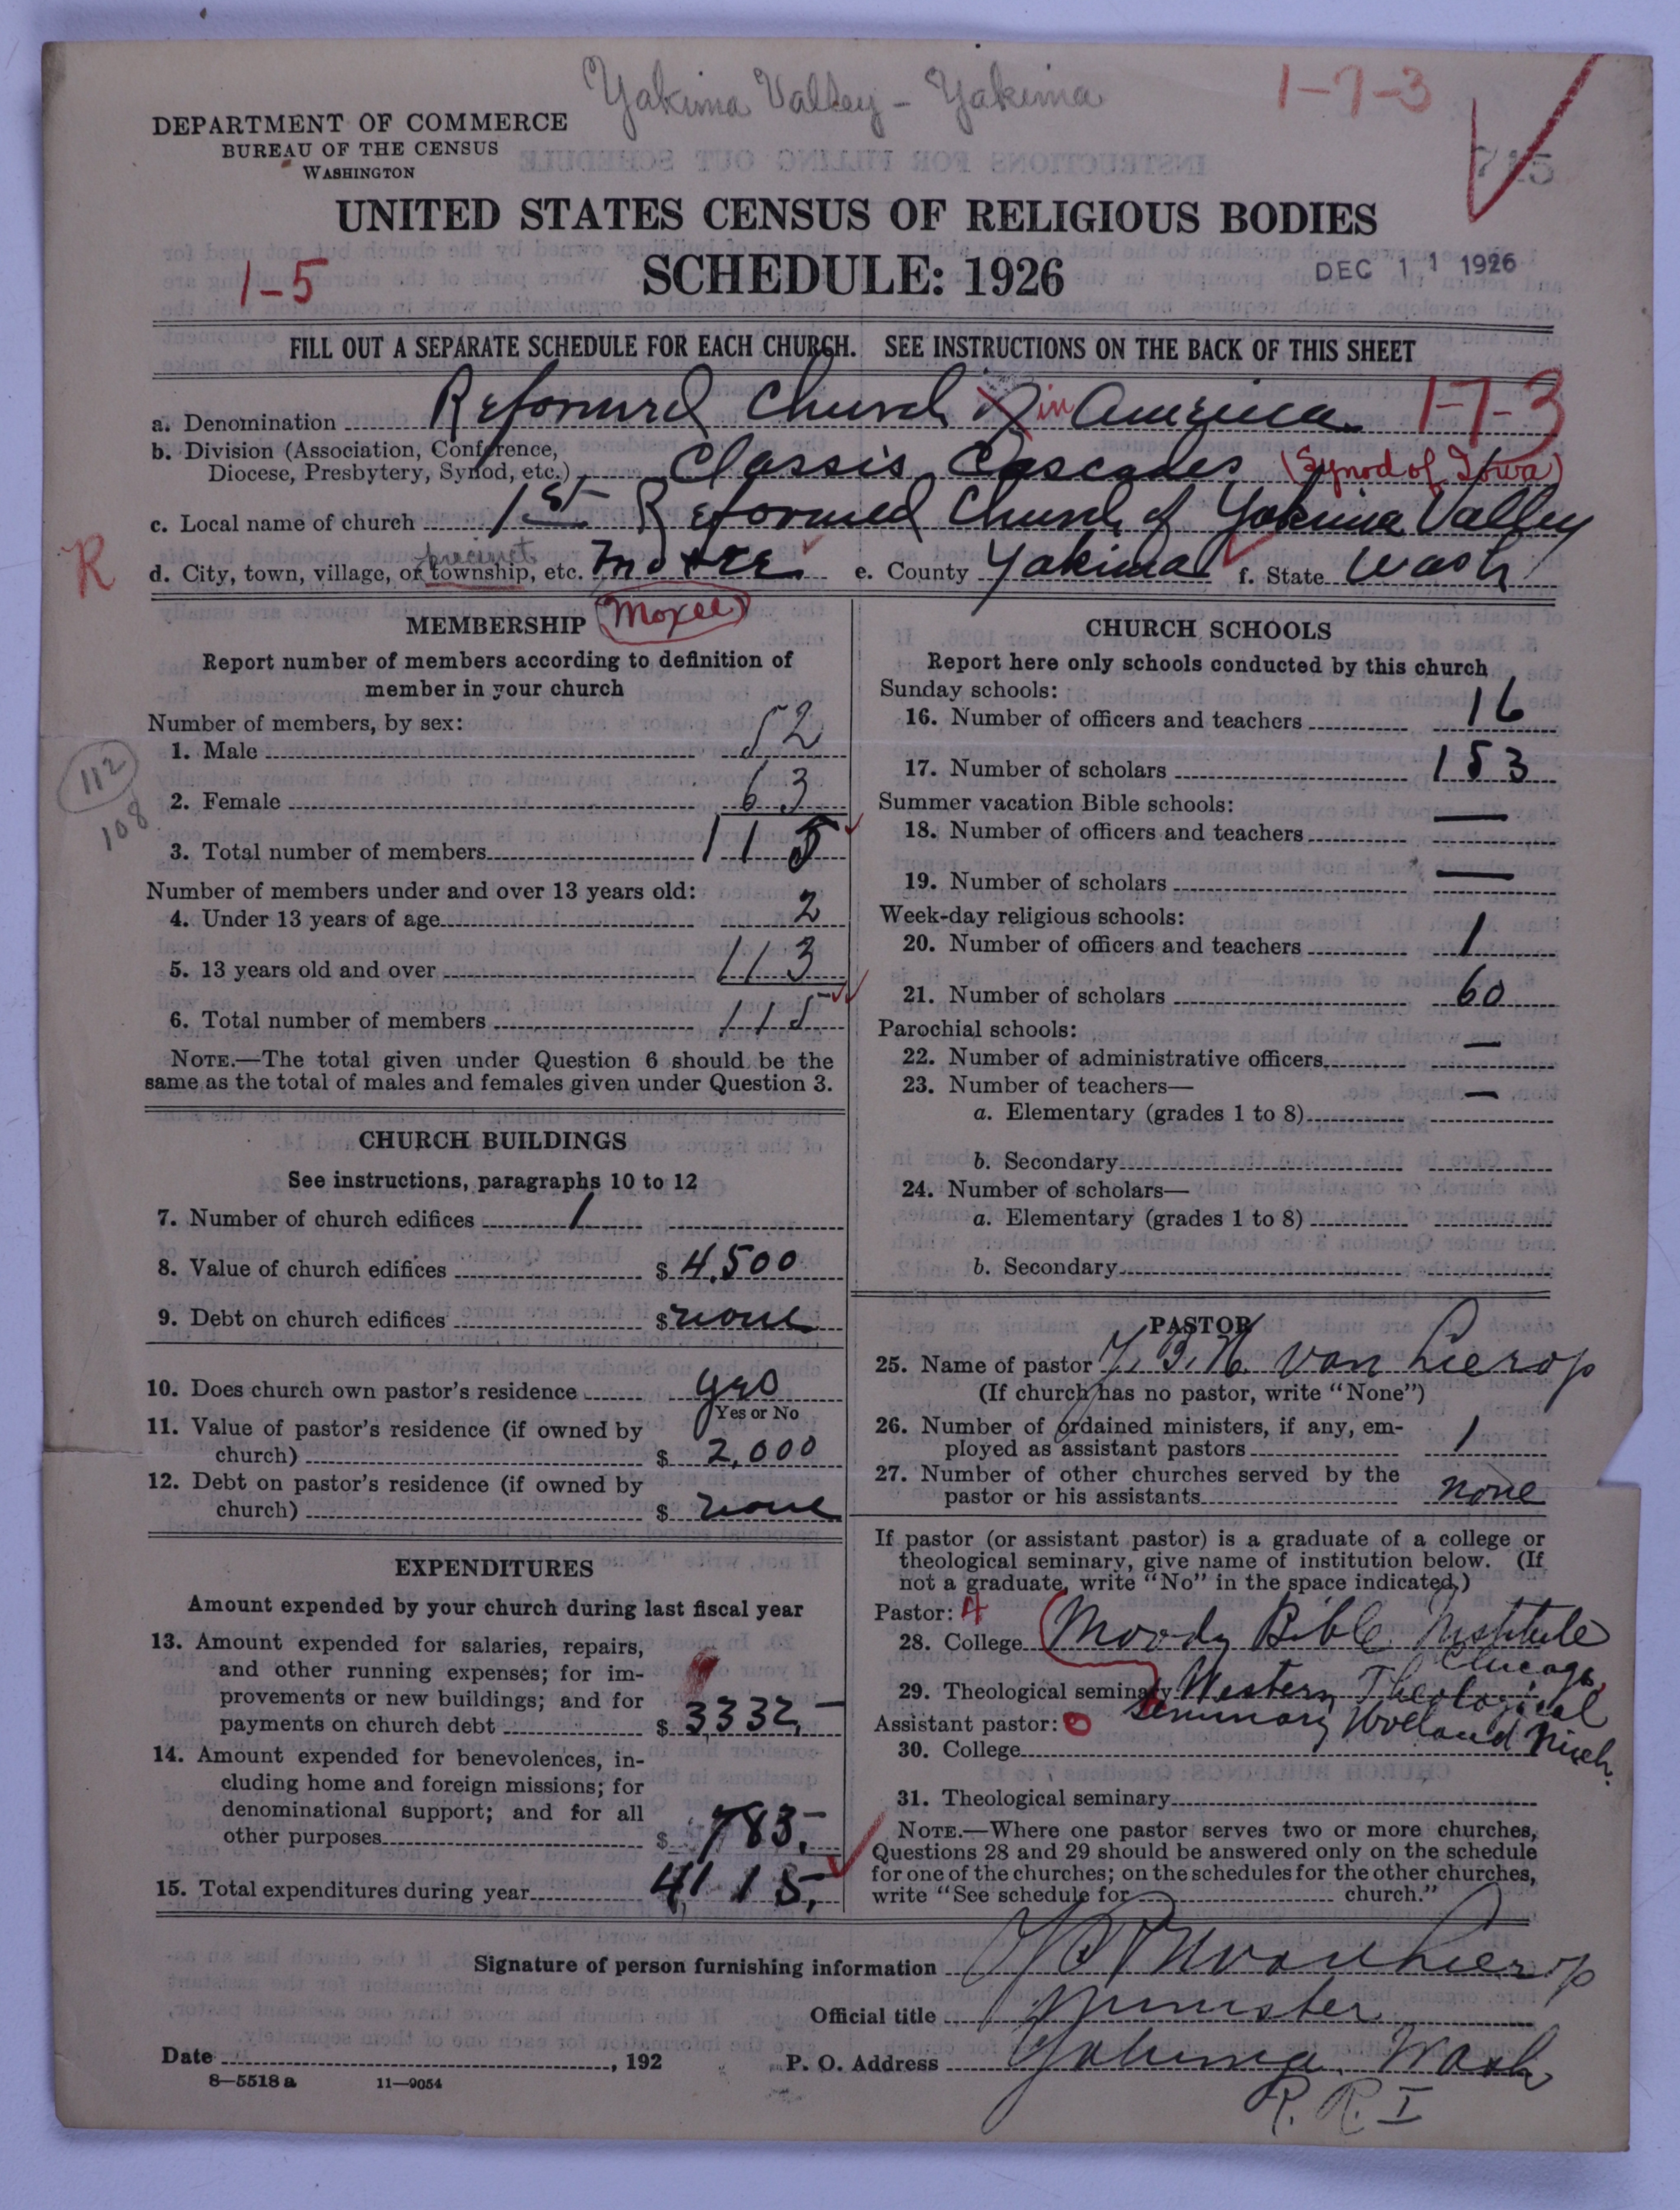 Yakima Valley - Yakima
1-7-3
DEPARTMENT OF COMMERCE
BUREAU OF THE CENSUS
WASHINGTON
715
UNITED STATES CENSUS OF RELIGIOUS BODIES
SCHEDULE: 1926
1-5
DEC 11 1926
FILL OUT A SEPARATE SCHEDULE FOR EACH CHURCH. SEE INSTRUCTIONS ON THE BACK OF THIS SHEET
a. Denomination Reformed Church in America 1-7-3
b. Division (Association, Conference,
Diocese, Presbytery, Synod, etc.) Classis Cascades (Synod of Iowa)
c. Local name of church 1st Reformed Church of Yakima Valley
R
precinct
d. City, town, village, or township, etc. Moxee e. County Yakima f. State Wash
Moxee
MEMBERSHIP
Report number of members according to definition of
member in your church
Number of members, by sex:
1. Male 52
112
2. Female 63
108
3. Total number of members 115
Number of members under and over 13 years old:
4. Under 13 years of age 2
5. 13 years old and over 113
6. Total number of members 115
NOTE.—The total given under Question 6 should be the
same as the total of males and females given under Question 3.
CHURCH BUILDINGS
See instructions, paragraphs 10 to 12
7. Number of church edifices 1
8. Value of church edifices $ 4,500
9. Debt on church edifices $ none
10. Does church own pastor's residence yes
Yes or No
11. Value of pastor's residence (if owned by
church) $ 2,000
12. Debt on pastor's residence (if owned by
church) $ none
EXPENDITURES
Amount expended by your church during last fiscal year
13. Amount expended for salaries, repairs,
and other running expenses; for im-
provements or new buildings; and for
payments on church debt $ 3332,-
14. Amount expended for benevolences, in-
cluding home and foreign missions; for
denominational support; and for all
other purposes $ 783,-
15. Total expenditures during year 4,115,
CHURCH SCHOOLS
Report here only schools conducted by this church
Sunday schools:
16. Number of officers and teachers 16
17. Number of scholars 153
Summer vacation Bible schools:
18. Number of officers and teachers —
19. Number of scholars —
Week-day religious schools:
20. Number of officers and teachers 1
21. Number of scholars 60
Parochial schools:
22. Number of administrative officers —
23. Number of teachers—
a. Elementary (grades 1 to 8) —
b. Secondary
24. Number of scholars—
a. Elementary (grades 1 to 8)
b. Secondary
PASTOR
25. Name of pastor van Lierop
(If church has no pastor, write "None")
26. Number of ordained ministers, if any, em-
ployed as assistant pastors 1
27. Number of other churches served by the
pastor or his assistants none
If pastor (or assistant pastor) is a graduate of a college or
theological seminary, give name of institution below. (If
not a graduate, write "No" in the space indicated.)
Pastor: 4
28. College Moody Bible Institute
Chicago,
29. Theological seminary Western Theological
Seminary Holland Mich.
Assistant pastor: 0
30. College
31. Theological seminary
NOTE.—Where one pastor serves two or more churches,
Questions 28 and 29 should be answered only on the schedule
for one of the churches; on the schedules for the other churches,
write "See schedule for church."
Signature of person furnishing information van Lierop
Official title Minister
Date , 192 P. O. Address Yakima Wash
8—5518 a 11—9054
R. R. I